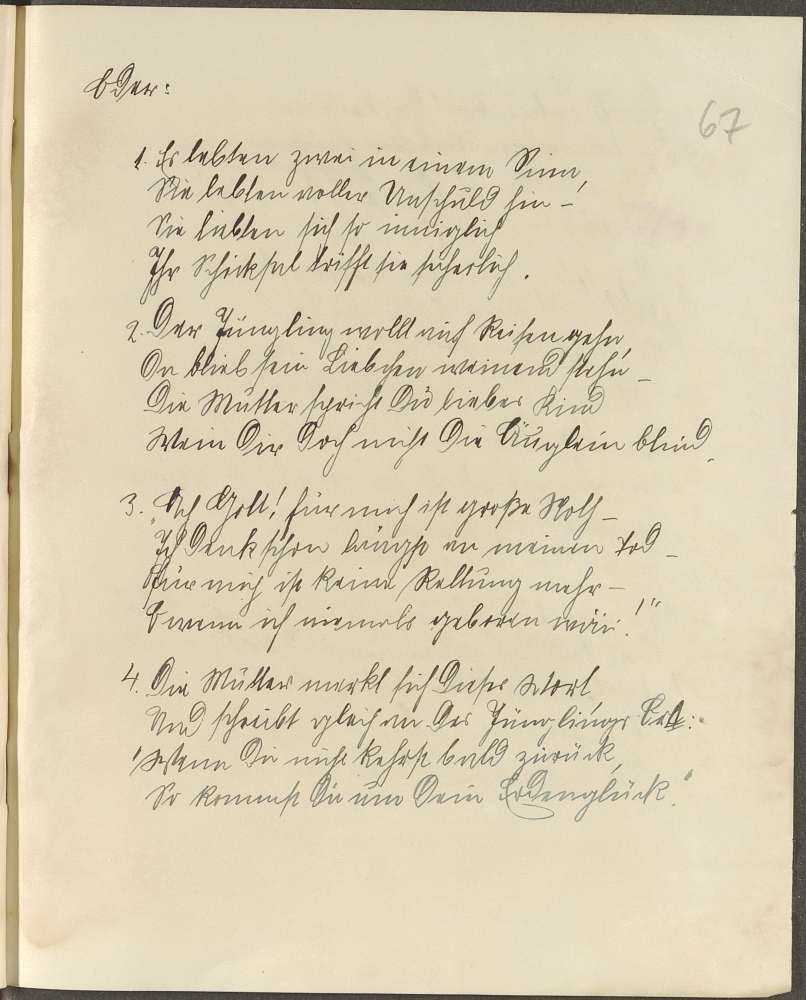 Oder:
67
1. Es lebten zwei in einem Sinn,
Sie lebten voller Unschuld hin –
Sie liebten sich so inniglich
Ihr Schicksal trifft sie sicherlich.
2. Der Jüngling wollt auf Reisen gehn,
Da blieb sein Liebchen weinend stehn –
Die Mutter spricht Du liebes Kind
Wein Dir doch nicht die Äuglein blind.
3. "Ach Gott! für mich ist große Noth –
Ich denk schon längst an meinen Tod –
Für mich ist keine Rettung mehr –
O wenn ich niemals geboren wär!"
4. Die Mutter merkt sich dieses Wort
Und schreibt gleich an des Jünglings Ort:
"Wenn Du nicht kehrst bald zurück,
So kommst Du um Dein Erdenglück."